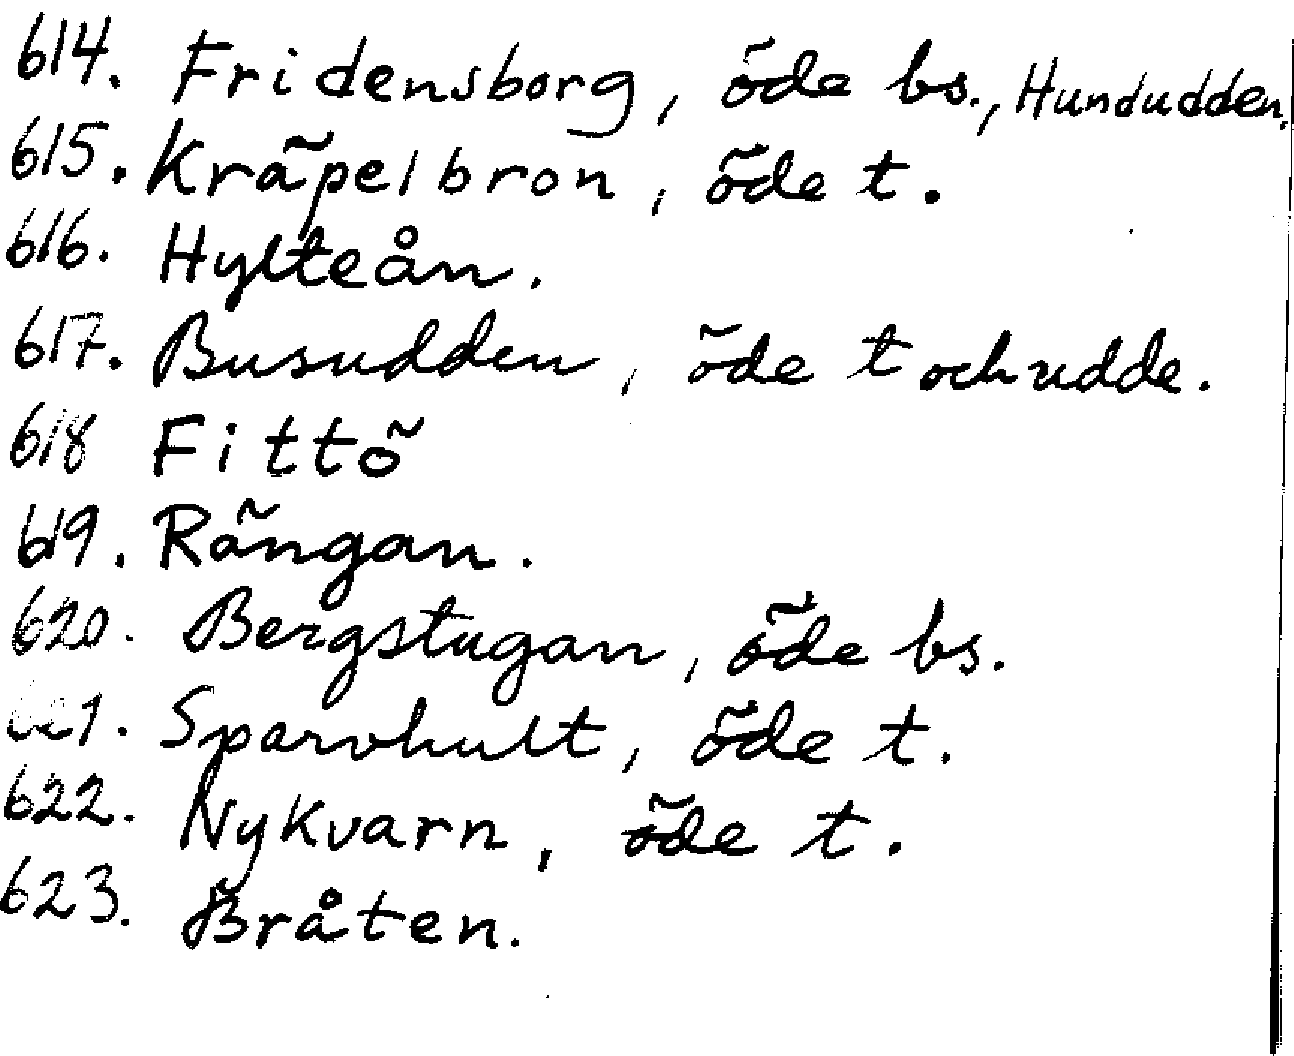 614. Fridensborg, öde bs., Hundudden.
615. Kräpelbron, öde t.
616. Hylteån.
617. Busudden, öde t och udde.
618 Fittö
619. Rängan.
620. Bergstugan, öde bs.
621. Sparvhult, öde t.
622. Nykvarn, öde t.
623. Bråten.